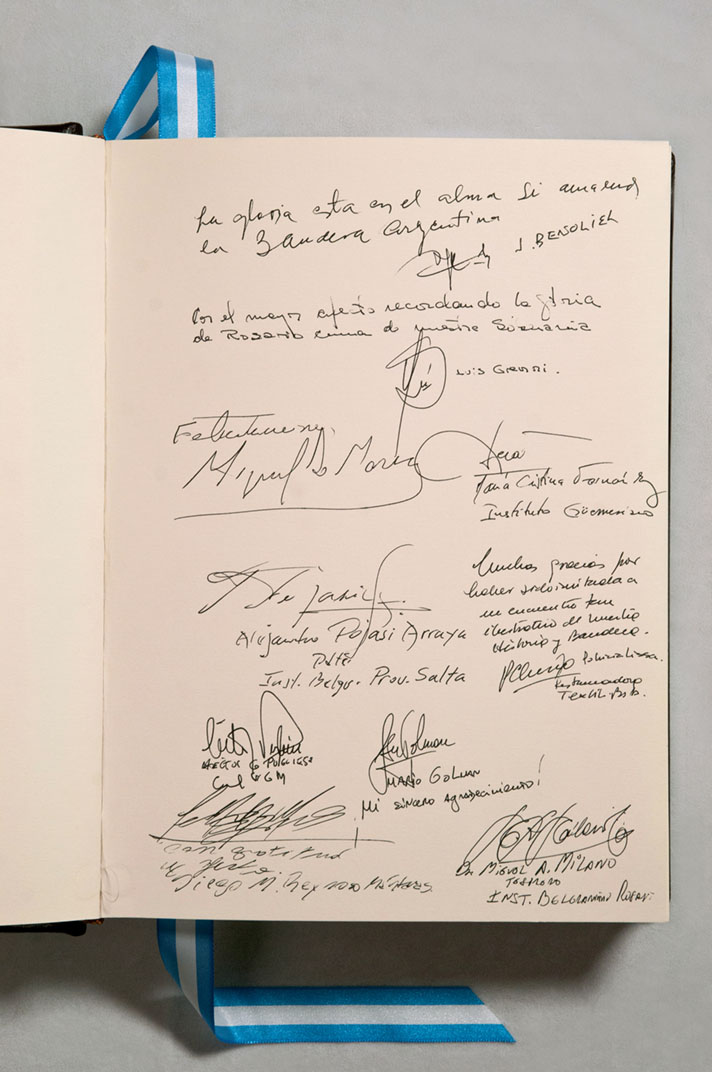 La gloria esta en el alma si amamos
la Bandera Argentina
J. BENSOLIEL
Con el mayor afecto recordando la gloria
de Rosario cuna de nuestra
LUIS
Felicitaciones.
Miguel
María Cristina Fernández
Instituto Güemesiano
Alejandro Pojasi Arraya
Pdte
Inst. Belgr. Prov. Salta
Muchas gracias por
haber sido invitada a
un encuentro tan
ilustrativo de nuestra
Historia y Bandera.
Restauradora
Textil
HECTOR PUGLIESE
MARIO GOLMAN
Mi sincero agradecimiento!
Con gratitud
Diego M.
Dr. MIGUEL A. MILANO
TESORERO
INST. BELGRANIANO ROSARIO